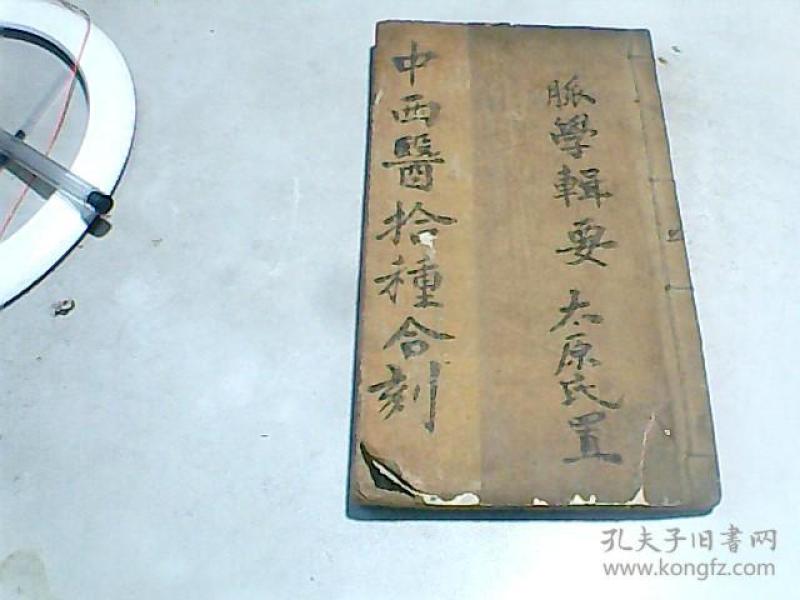 脈學輯要 太原氏置
中西醫拾種合刻
孔夫子旧書网
www.kongfz.com